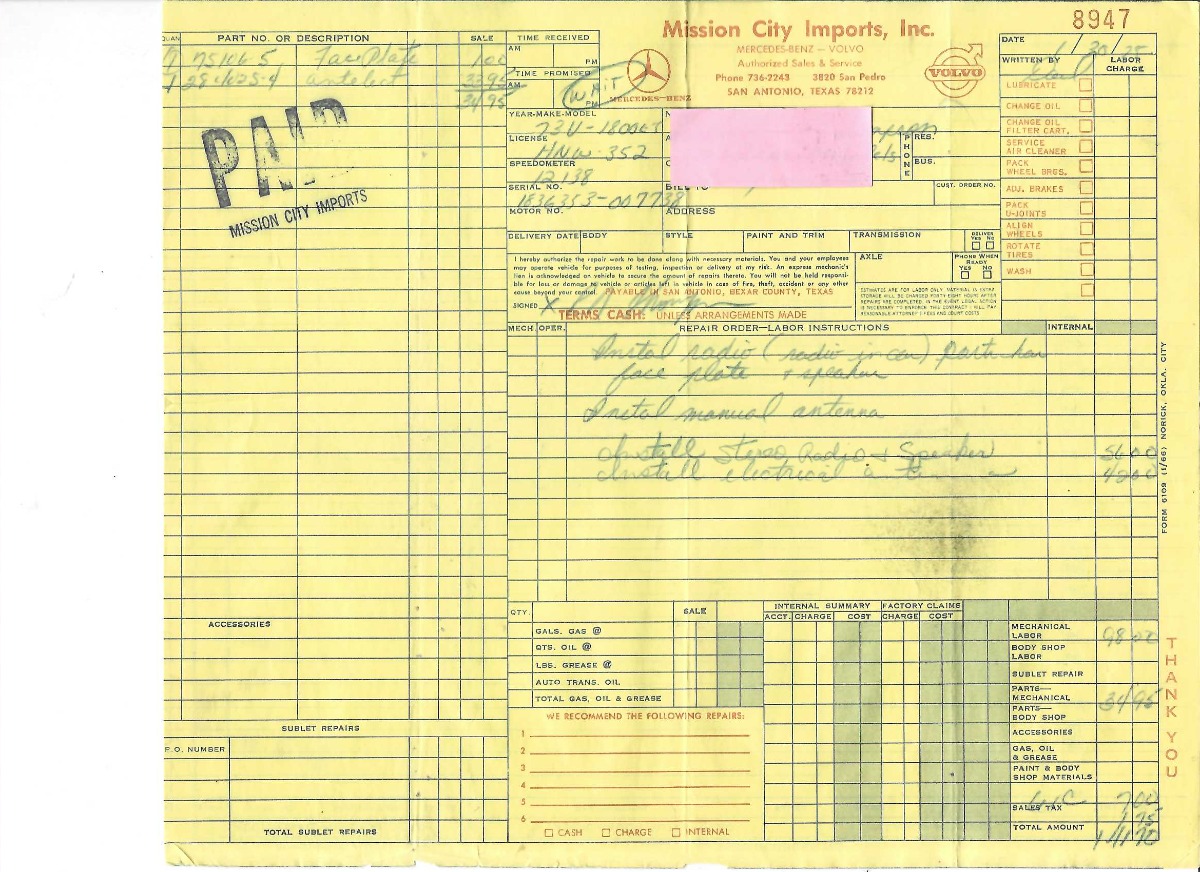 8947
Mission City Imports, Inc.
MERCEDES-BENZ — VOLVO
Authorized Sales & Service
Phone 736-2243 3820 San Pedro
SAN ANTONIO, TEXAS 78212
MERCEDES-BENZ
VOLVO
QUAN PART NO. OR DESCRIPTION SALE
1 75106-5 Face Plate 1.00
1 281025-4 33 95
34 95
PAID
MISSION CITY IMPORTS
TIME RECEIVED
AM
PM
TIME PROMISED
AM
PM
WAIT
DATE 1/30/75
WRITTEN BY
LABOR CHARGE
LUBRICATE
CHANGE OIL
CHANGE OIL FILTER CART.
SERVICE AIR CLEANER
PACK WHEEL BRGS.
ADJ. BRAKES
PACK U-JOINTS
ALIGN WHEELS
ROTATE TIRES
WASH
YEAR-MAKE-MODEL
73 V-1800ES
LICENSE
HNW-352
SPEEDOMETER
12 138
SERIAL NO.
1836353-007738
MOTOR NO.
BILL TO
ADDRESS
PHONE
RES.
BUS.
CUST. ORDER NO.
DELIVERY DATE BODY STYLE PAINT AND TRIM TRANSMISSION
DELIVER YES NO
AXLE
PHONE WHEN READY YES NO
I hereby authorize the repair work to be done along with necessary materials. You and your employees
may operate vehicle for purposes of testing, inspection or delivery at my risk. An express mechanic's
lien is acknowledged on vehicle to secure the amount of repairs thereto. You will not be held responsi-
ble for loss or damage to vehicle or articles left in vehicle in case of fire, theft, accident or any other
cause beyond your control. PAYABLE IN SAN ANTONIO, BEXAR COUNTY, TEXAS
SIGNED X
TERMS CASH: UNLESS ARRANGEMENTS MADE
ESTIMATES ARE FOR LABOR ONLY, MATERIAL IS EXTRA
STORAGE WILL BE CHARGED FORTY-EIGHT HOURS AFTER
REPAIRS ARE COMPLETED. IN THE EVENT LEGAL ACTION
IS NECESSARY TO ENFORCE THIS CONTRACT I WILL PAY
REASONABLE ATTORNEY'S FEES AND COURT COSTS
MECH. OPER. REPAIR ORDER—LABOR INSTRUCTIONS INTERNAL
Instal radio (radio in car) parts has
face plate + speaker
Instal manual antenna
Install Stereo Radio & Speaker 56 00
Install electrical antenna 42 00
FORM 6109 (1/66) NORICK, OKLA. CITY
ACCESSORIES
SUBLET REPAIRS
P.O. NUMBER
TOTAL SUBLET REPAIRS
QTY. SALE
GALS. GAS @
QTS. OIL @
LBS. GREASE @
AUTO TRANS. OIL
TOTAL GAS, OIL & GREASE
WE RECOMMEND THE FOLLOWING REPAIRS:
1
2
3
4
5
6
CASH CHARGE INTERNAL
INTERNAL SUMMARY FACTORY CLAIMS
ACCT. CHARGE COST CHARGE COST
MECHANICAL LABOR 98 00
BODY SHOP LABOR
SUBLET REPAIR
PARTS— MECHANICAL 34 95
PARTS— BODY SHOP
ACCESSORIES
GAS, OIL & GREASE
PAINT & BODY SHOP MATERIALS
7 00
SALES TAX 1 75
TOTAL AMOUNT 141 70
THANK YOU